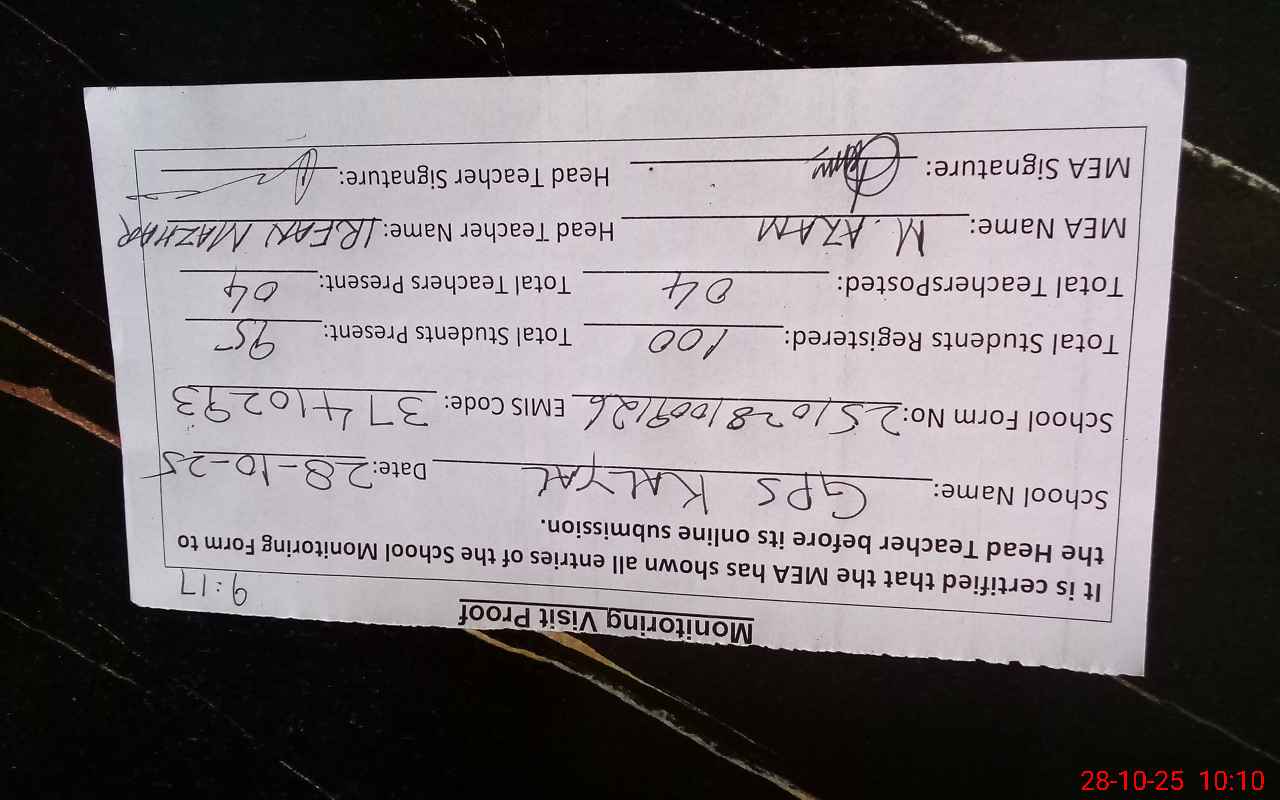 Monitoring Visit Proof
9:17
It is certified that the MEA has shown all entries of the School Monitoring Form to
the Head Teacher before its online submission.
School Name: GPS KALYAL Date: 28-10-25
School Form No: 2510281009126 EMIS Code: 37410293
Total Students Registered: 100 Total Students Present: 95
Total TeachersPosted: 04 Total Teachers Present: 04
MEA Name: M. AZAM Head Teacher Name: IRFAN MAZHAR
MEA Signature: Head Teacher Signature:
28-10-25 10:10